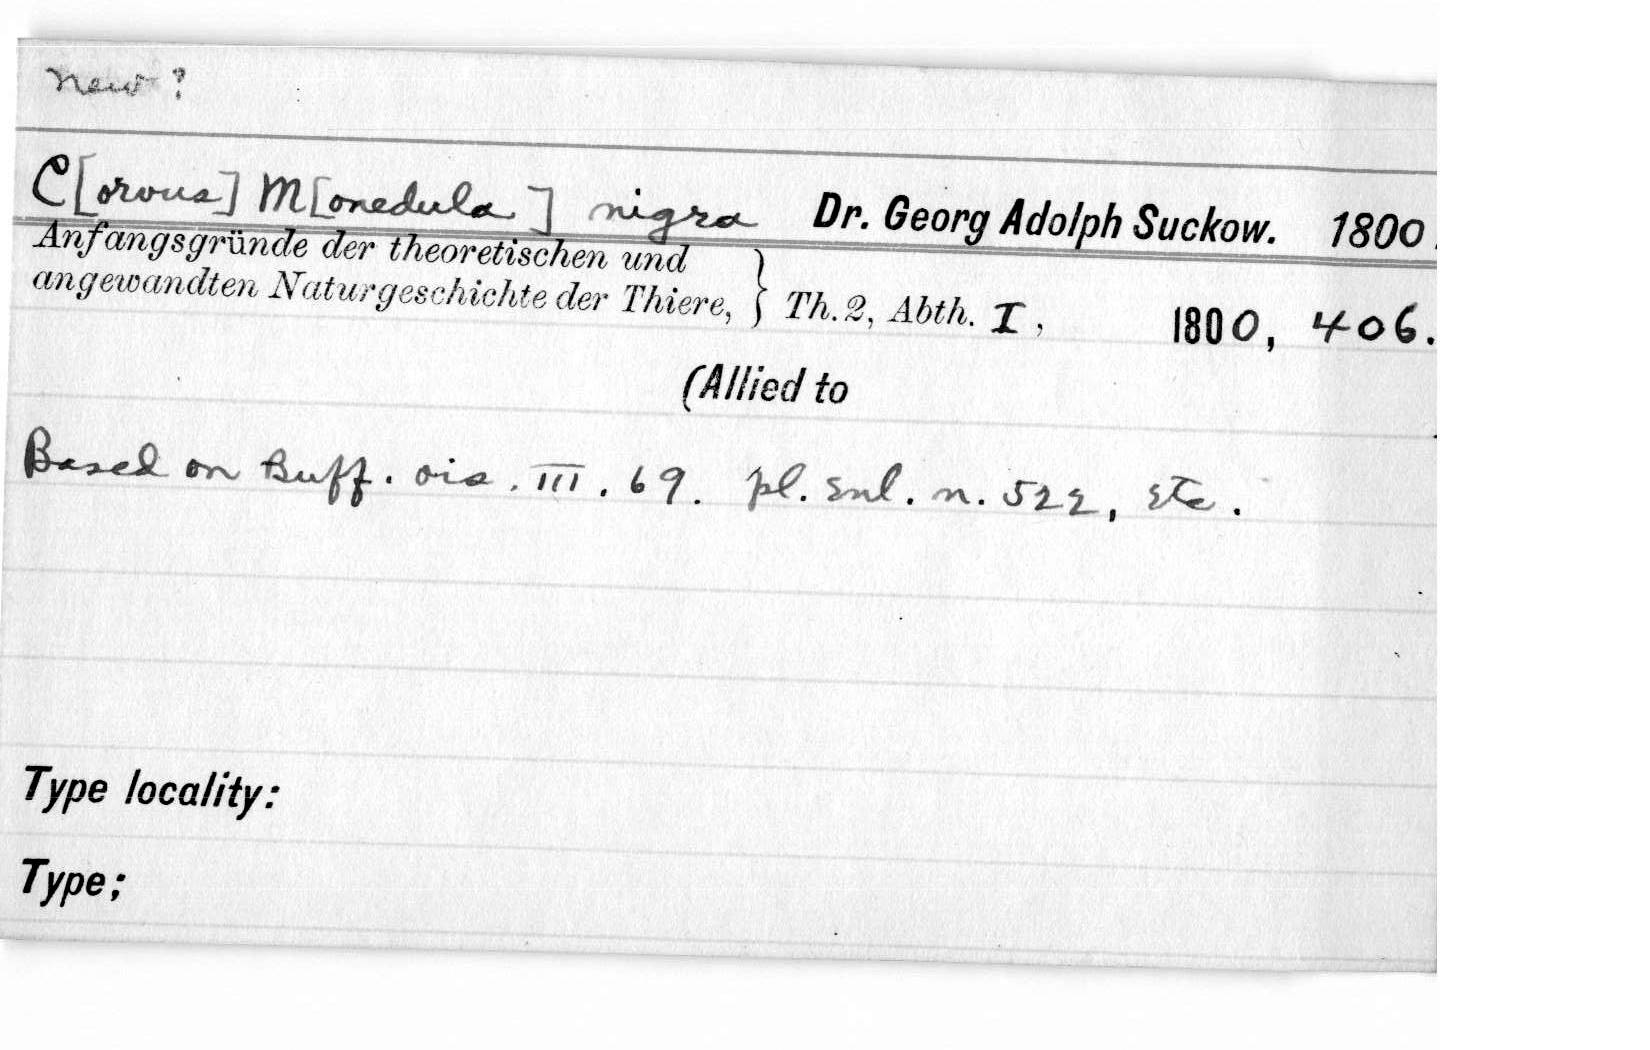 New ?
C[orvus] M[onedula] nigra Dr. Georg Adolph Suckow. 1800.
Anfangsgründe der theoretischen und
angewandten Naturgeschichte der Thiere, } Th. 2, Abth. I, 1800, 406.
(Allied to
Based on Buff. ois. III. 69. pl. enl. n. 522, etc.
Type locality:
Type;